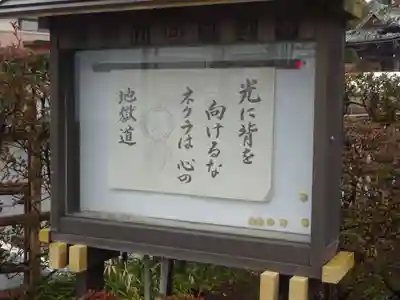 光に背を
向けるな
ネクラは心の
地獄道